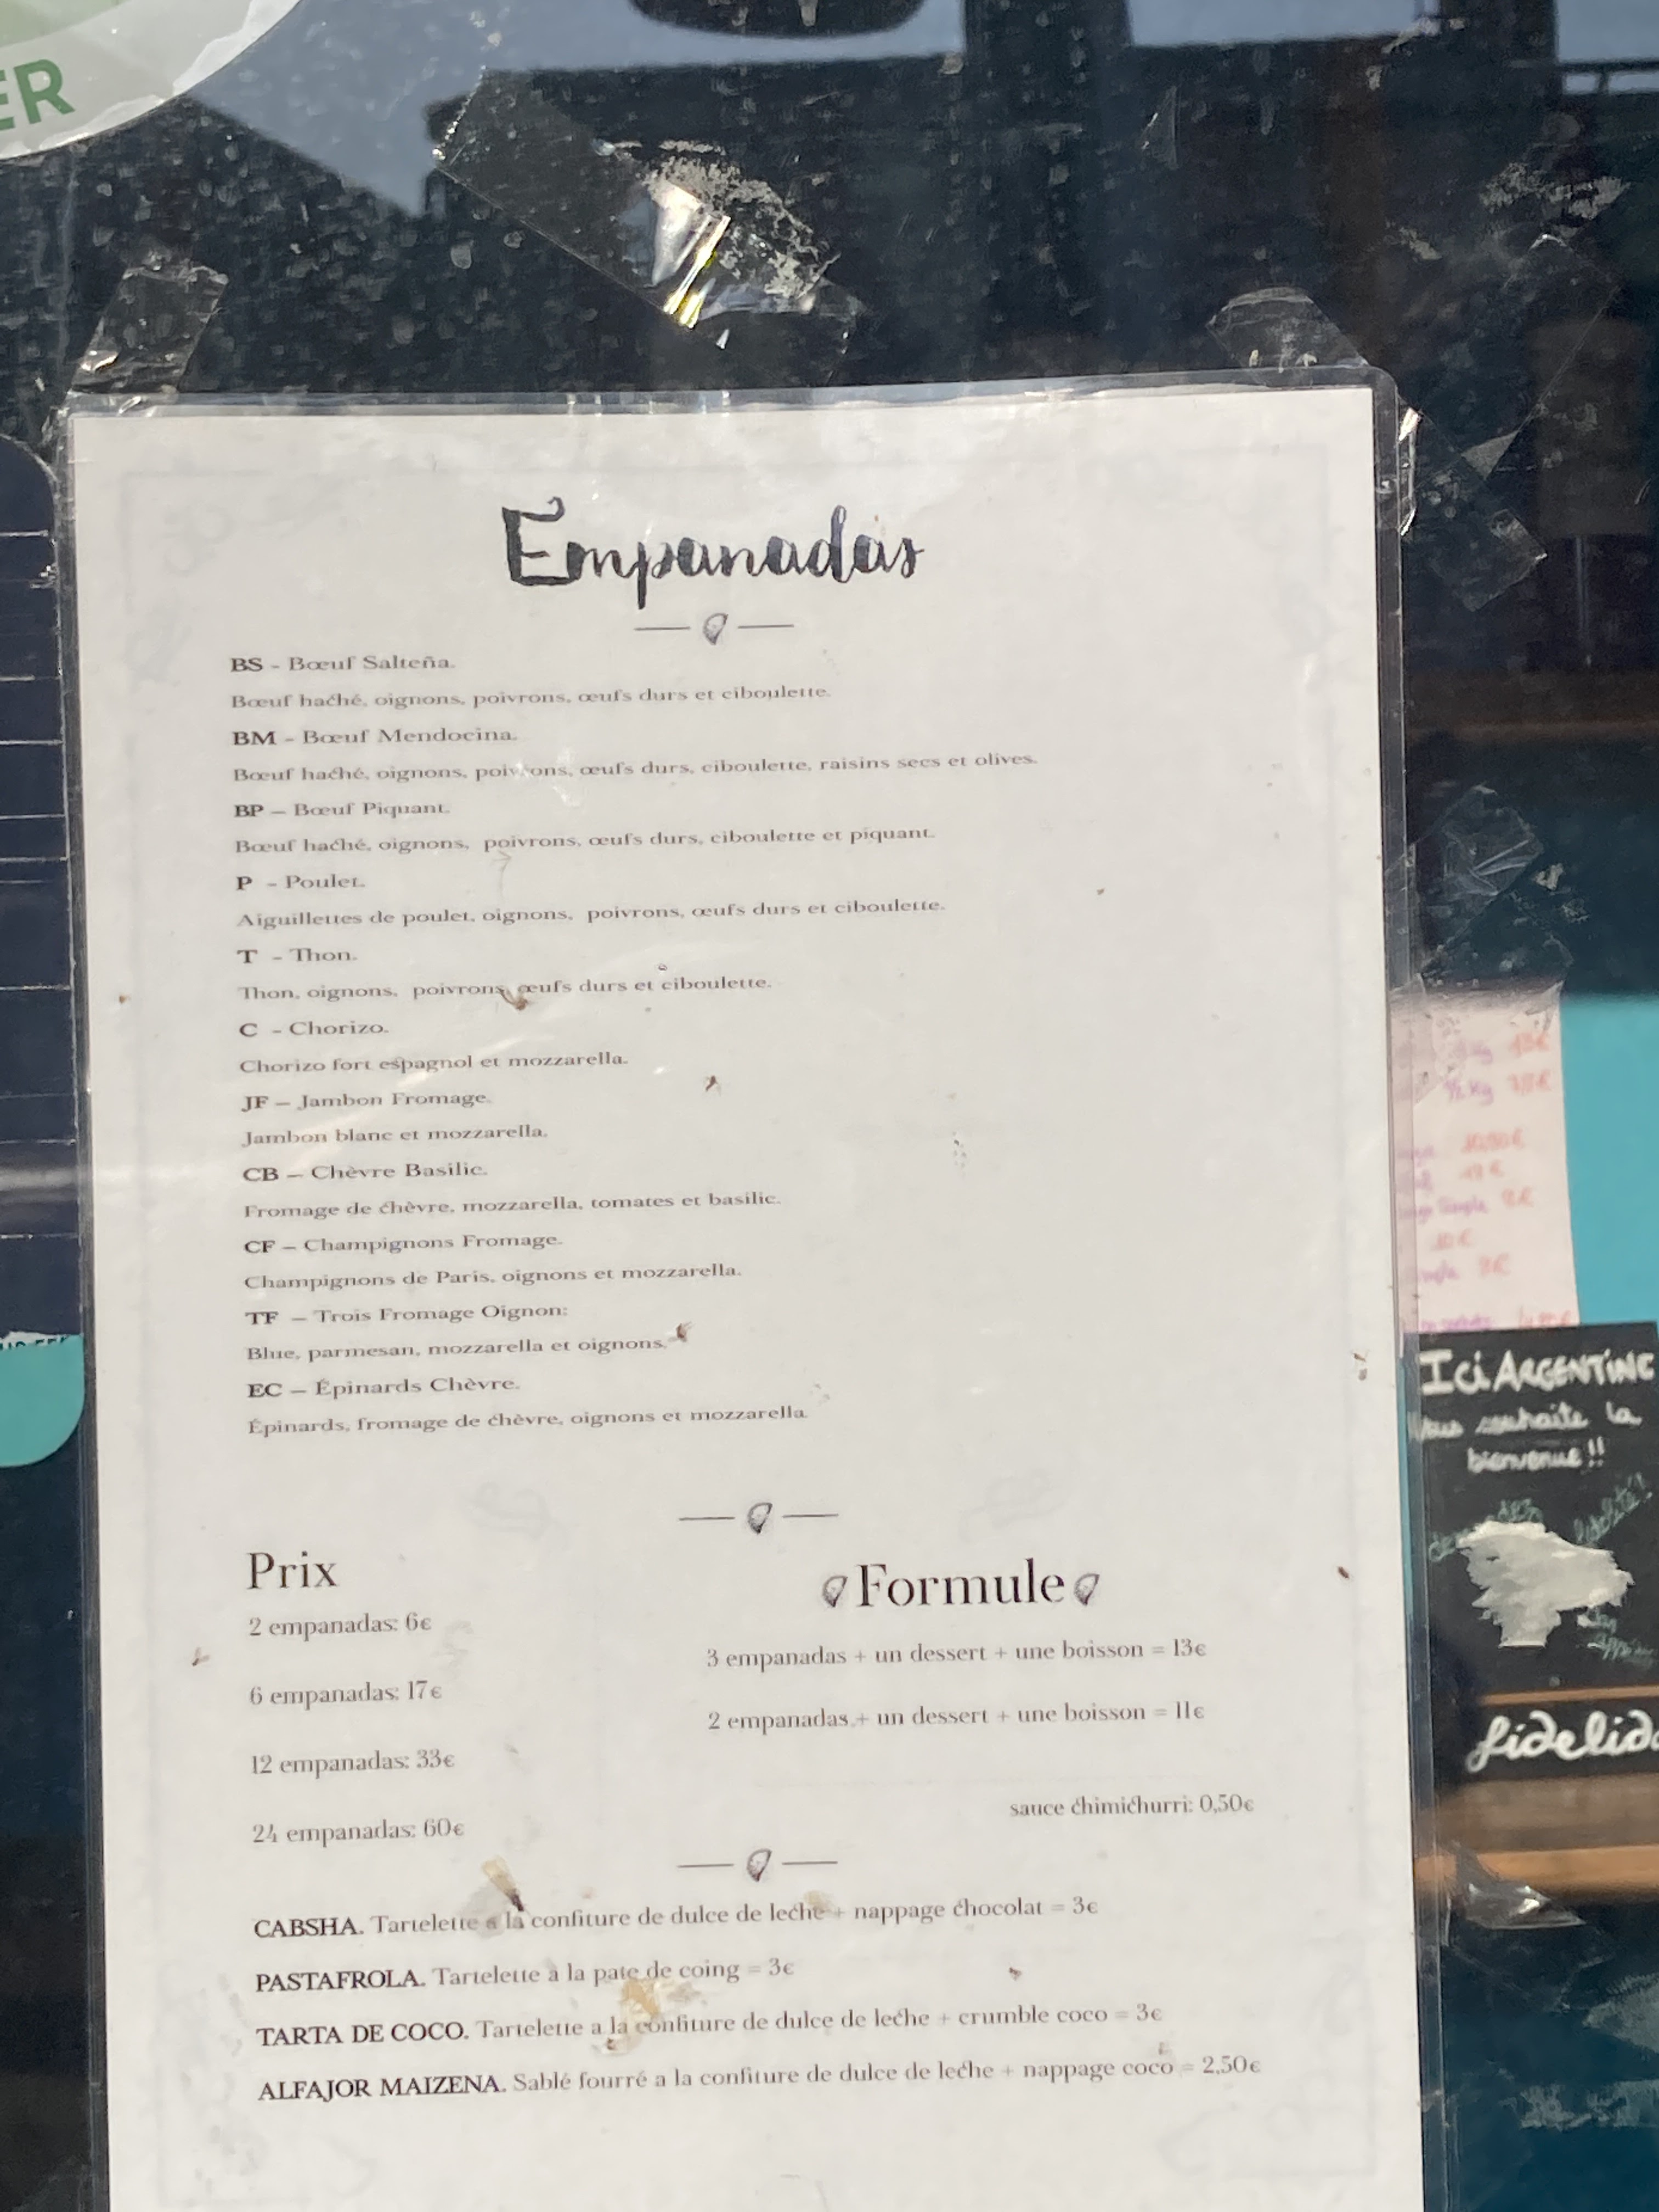 ER
Empanadas
BS - Bœuf Salteña.
Bœuf haché, oignons, poivrons, œufs durs et ciboulette.
BM - Bœuf Mendocina.
Bœuf haché, oignons, poivrons, œufs durs, ciboulette, raisins secs et olives.
BP – Bœuf Piquant.
Bœuf haché, oignons, poivrons, œufs durs, ciboulette et piquant.
P - Poulet.
Aiguillettes de poulet, oignons, poivrons, œufs durs et ciboulette.
T - Thon.
Thon, oignons, poivrons, œufs durs et ciboulette.
C - Chorizo.
Chorizo fort espagnol et mozzarella.
JF – Jambon Fromage.
Jambon blanc et mozzarella.
CB – Chèvre Basilic.
Fromage de chèvre, mozzarella, tomates et basilic.
CF – Champignons Fromage.
Champignons de Paris, oignons et mozzarella.
TF – Trois Fromage Oignon:
Blue, parmesan, mozzarella et oignons.
EC – Épinards Chèvre.
Épinards, fromage de chèvre, oignons et mozzarella.
Prix
2 empanadas: 6€
6 empanadas: 17€
12 empanadas: 33€
24 empanadas: 60€
Formule
3 empanadas + un dessert + une boisson = 13€
2 empanadas + un dessert + une boisson = 11€
sauce chimichurri: 0,50€
CABSHA. Tartelette a la confiture de dulce de leche + nappage chocolat = 3€
PASTAFROLA. Tartelette a la pate de coing = 3€
TARTA DE COCO. Tartelette a la confiture de dulce de leche + crumble coco = 3€
ALFAJOR MAIZENA. Sablé fourré a la confiture de dulce de leche + nappage coco = 2,50€
Ici ARGENTINE
Vous souhaite la
bienvenue !!
fidelid